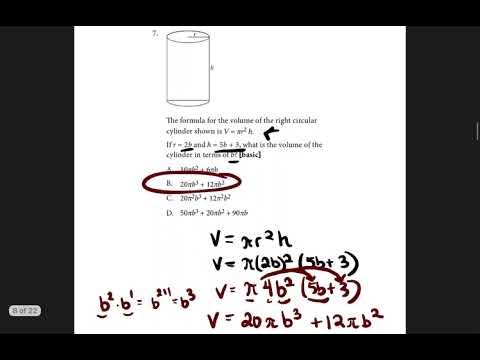 7.
r
h
The formula for the volume of the right circular
cylinder shown is V = πr² h.
If r = 2b and h = 5b + 3, what is the volume of the
cylinder in terms of b? [basic]
A. 10πb² + 6πb
B. 20πb³ + 12πb²
C. 20π²b³ + 12π²b²
D. 50πb³ + 20πb² + 90πb
V = πr²h
V = π(2b)² (5b+3)
V = π 4b² (5b+3)
b² · b¹ = b²⁺¹ = b³
V = 20πb³ + 12πb²
8 of 22